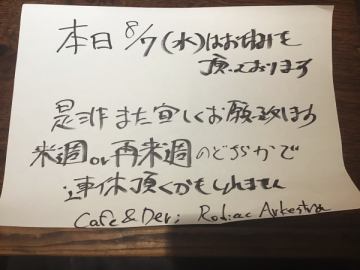 本日8/7(水)はお休みを
頂っております
是非また宜しくお願い致します
来週or再来週のどちらかで
連休頂くかもしれません
Cafe & Deri Rodiac Arkestra